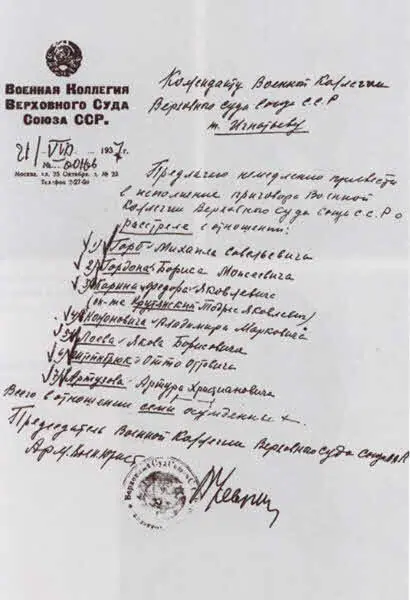 Военная Коллегия
Верховного Суда
Союза ССР.
21/VIII 1937 г.
№ 00166
Москва, ул. 25 Октября, д. № 23
Телефон 2-27-09
Коменданту Военной Коллегии
Верховного Суда Союза ССР
т. Игнатьеву
Предлагаю немедленно привести
в исполнение приговор Военной
Коллегии Верховного Суда Союза ССР о
расстреле в отношении:
1) Горб Михаила Савельевича
2) Гордона Бориса Моисеевича
3) Карина Федора Яковлевича
(он-же Крутянский Тодрес Яковлевич)
4) Кононовича Владимира Марковича
5) Лоева Якова Борисовича
6) Отто Оттовича
7) Артузова Артура Христиановича
Всего в отношении семи осужденных
Председатель Военной Коллегии Верховного Суда Союза ССР
Армвоенюрист